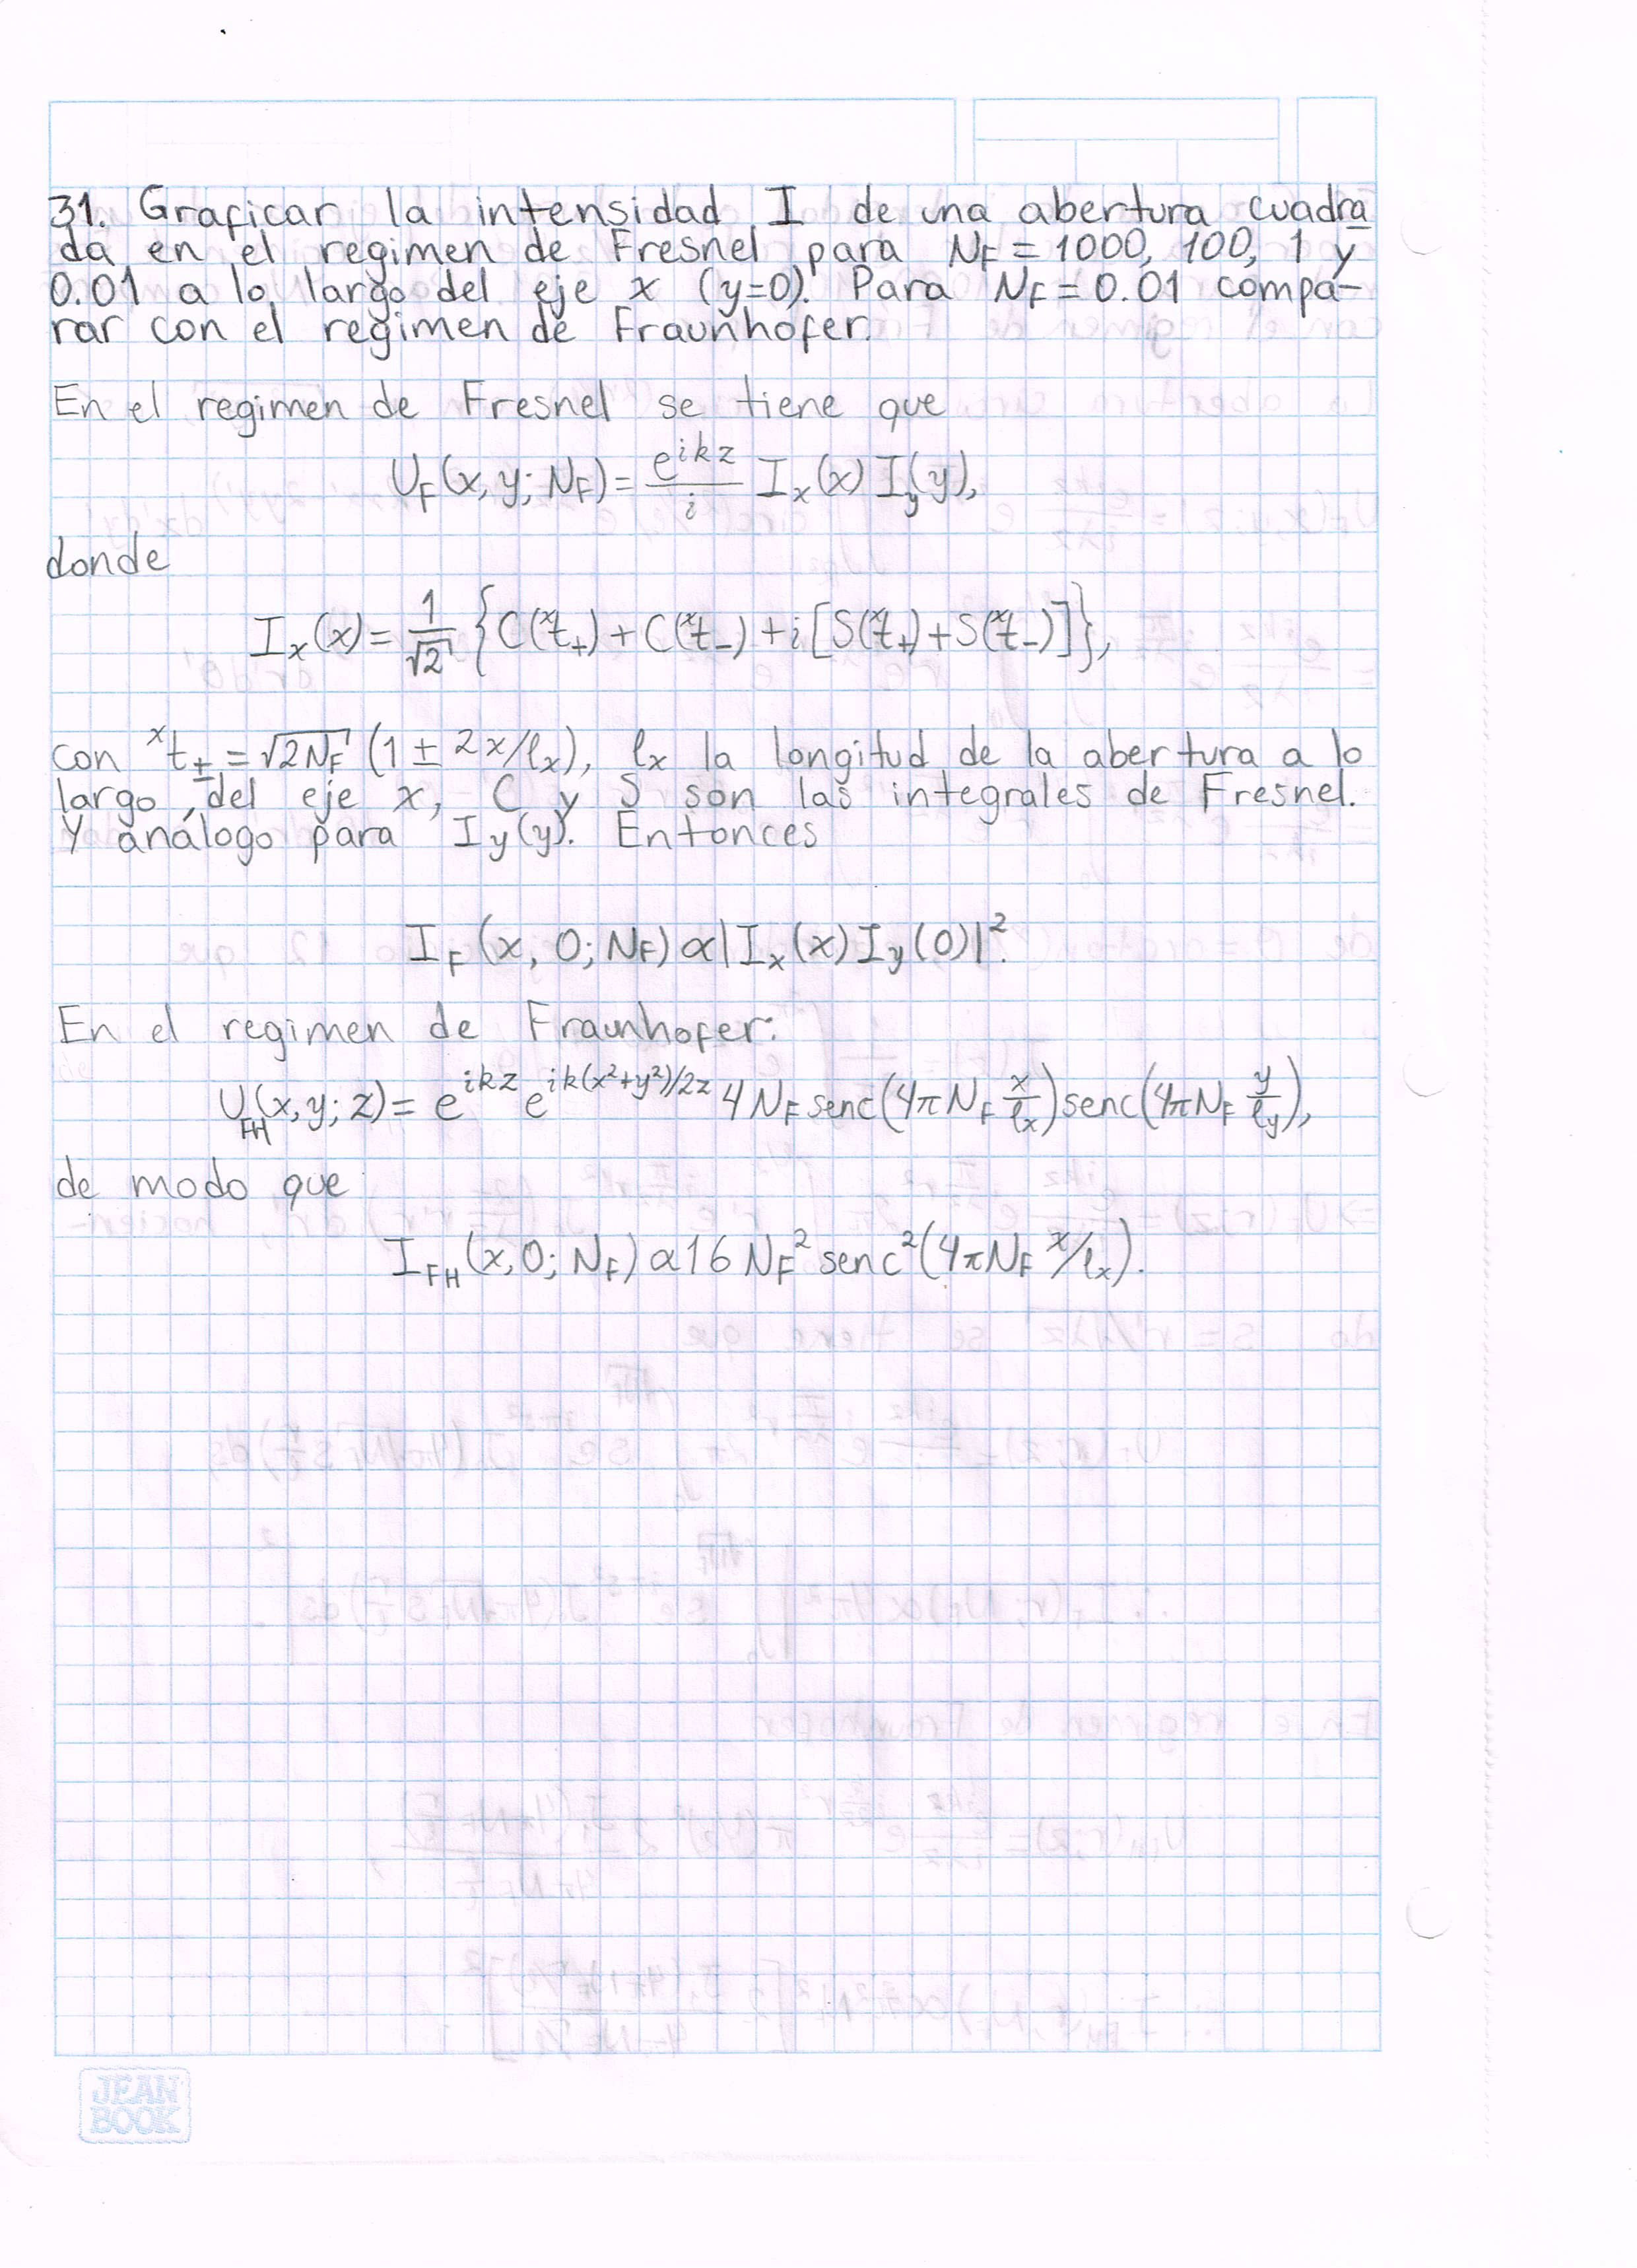 31. Graficar la intensidad I de una abertura cuadra
da en el regimen de Fresnel para N_F = 1000, 100, 1 y
0.01 a lo largo del eje x (y=0). Para N_F = 0.01 compa-
rar con el regimen de Fraunhofer.
En el regimen de Fresnel se tiene que
U_F(x, y; N_F) = \frac{e^{ikz}}{i} I_x(x) I_y(y),
donde
I_x(x) = \frac{1}{\sqrt{2}} {C(^xt_+) + C(^xt_-) + i[S(^xt_+) + S(^xt_-)]},
con ^xt_± = \sqrt{2N_F} (1 ± 2x/l_x), l_x la longitud de la abertura a lo
largo del eje x, C y S son las integrales de Fresnel.
Y análogo para I_y(y). Entonces
I_F(x, 0; N_F) α |I_x(x) I_y(0)|².
En el regimen de Fraunhofer:
U_{FH}(x, y; z) = e^{ikz} e^{ik(x²+y²)/2z} 4 N_F senc(4π N_F \frac{x}{l_x}) senc(4π N_F \frac{y}{l_y}),
de modo que
I_{FH}(x, 0; N_F) α 16 N_F² senc²(4π N_F x/l_x).
JEAN
BOOK